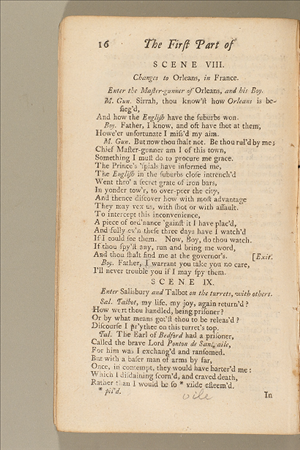 16 The First Part of
SCENE VIII.
Changes to Orleans, in France.
Enter the Master-gunner of Orleans, and his Boy.
M. Gun. Sirrah, thou know'st how Orleans is be-
sieg'd,
And how the English have the suburbs won.
Boy. Father, I know, and oft have shot at them,
Howe'er unfortunate I miss'd my aim.
M. Gun. But now thou shalt not. Be thou rul'd by me:
Chief Master-gunner am I of this town,
Something I must do to procure me grace.
The Prince's 'spials have informed me,
The English in the suburbs close intrench'd
Went thro' a secret grate of iron bars,
In yonder tow'r, to over-peer the city,
And thence discover how with most advantage
They may vex us, with shot or with assault.
To intercept this inconvenience,
A piece of ord'nance 'gainst it I have plac'd,
And fully ev'n these three days have I watch'd
If I could see them. Now, Boy, do thou watch.
If thou spy'st any, run and bring me word,
And thou shalt find me at the governor's. [Exit.
Boy. Father, I warrant you take you no care,
I'll never trouble you if I may spy them.
SCENE IX.
Enter Salisbury and Talbot on the turrets, with others.
Sal. Talbot, my life, my joy, again return'd?
How wert thou handled, being prisoner?
Or by what means got'st thou to be releas'd?
Discourse I pr'ythee on this turret's top.
Tal. The Earl of Bedford had a prisoner,
Called the brave Lord Ponton de Santraile,
For him was I exchang'd and ransomed.
But with a baser man of arms by far,
Once, in contempt, they would have barter'd me:
Which I disdaining scorn'd, and craved death,
Rather than I would be so * vilde esteem'd.
* pil'd. vile In